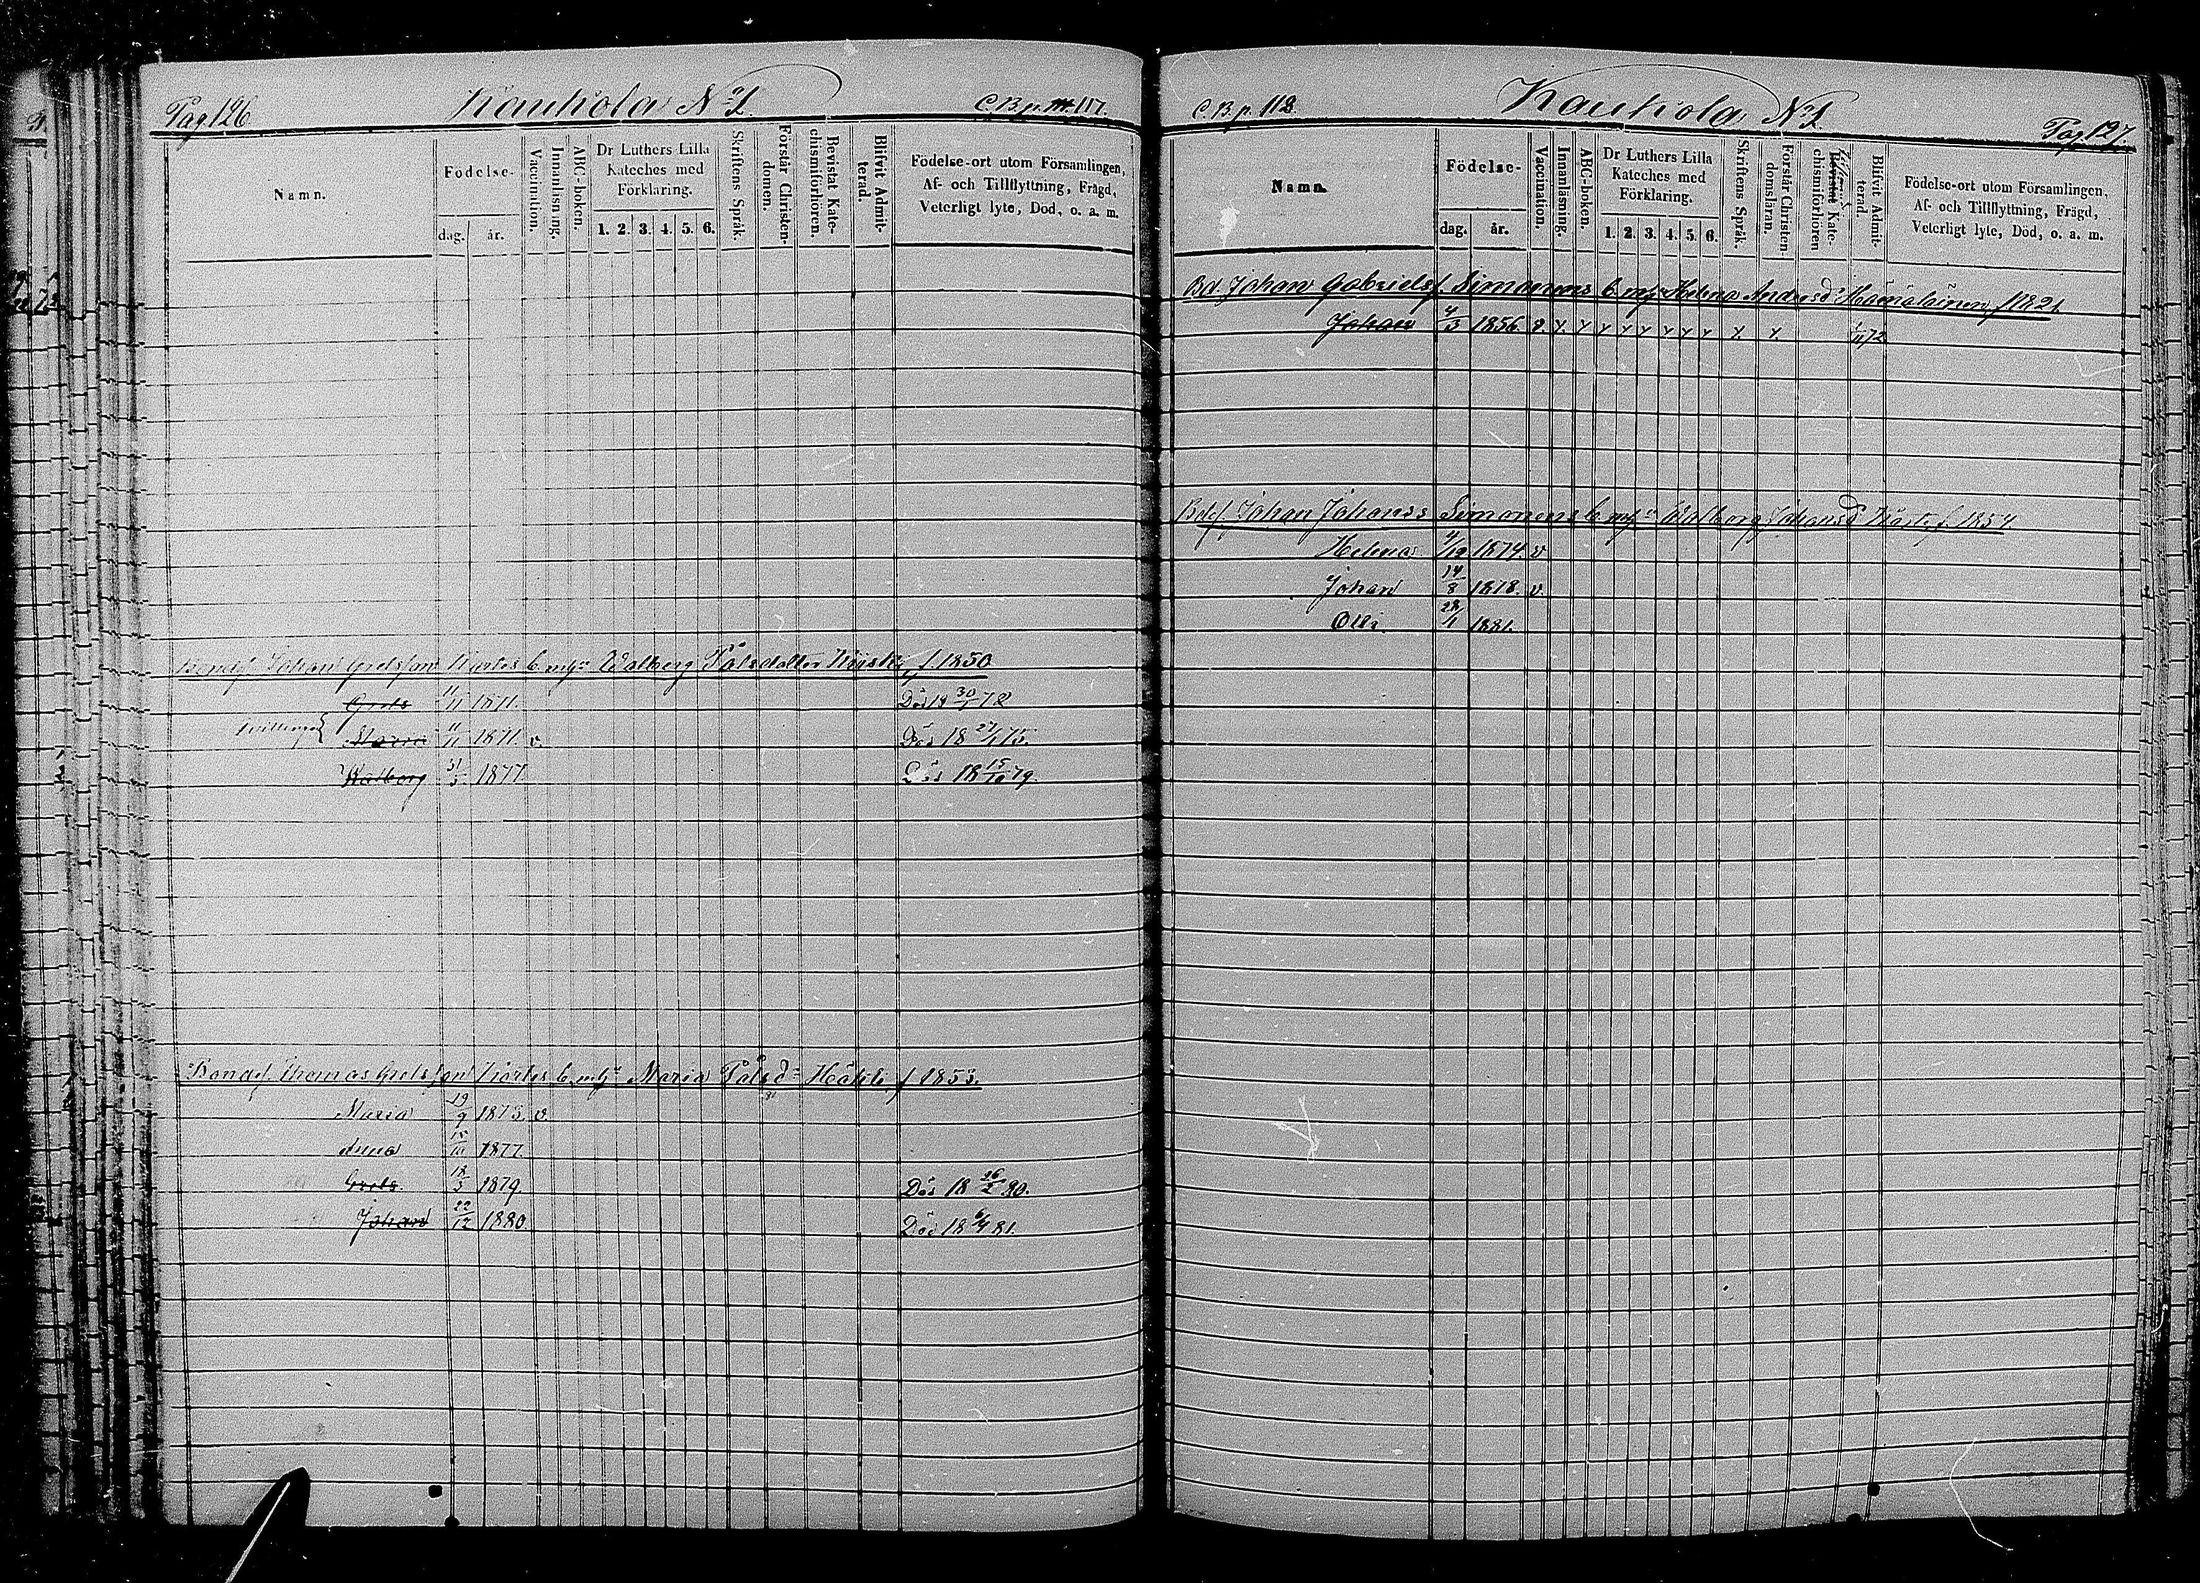 Pag 126
Kauhola № 1.
C.B.p. 117.
Namn.
Födelse-
dag. år.
Vaccination.
Innanläsning.
ABC-boken.
Dr Luthers Lilla
Kateches med
Förklaring.
1. 2. 3. 4. 5. 6.
Skriftens Språk.
Förstår Christen-
domen.
Bevistat Kate-
chismiförhören.
Blifvit Admit-
terad.
Födelse-ort utom Församlingen,
Af- och Tillflyttning, Frägd,
Veterligt lyte, Död, o. a. m.
Johan Grelsson Kortes Walborg Pålsdotter f. 1850
Grels 11/11 1871. Död 18 30/1 72
tvillingar
Maria 11/11 1871. v. Död 18 27/1 75.
Walborg 31/3 1877. Död 18 15/10 79.
Bondes. Thomas Grelsson Maria Pålsd:r f 1853.
Maria 19/9 1873. v
Anna 15/10 1877.
Grels. 18/3 1879. Död 18 26/2 80.
Johan 22/12 1880. Död 18 6/4 81.
C.B.p. 118.
Kauhola № 1.
Pag. 127.
Namn.
Födelse-
dag. år.
Vaccination.
Innanläsning.
ABC-boken.
Dr Luthers Lilla
Kateches med
Förklaring.
1. 2. 3. 4. 5. 6.
Skriftens Språk.
Förstår Christen-
domsläran.
Bevistat Kate-
chismiförhören
Blifvit Admit-
terad.
Födelse-ort utom Församlingen,
Af- och Tillflyttning, Frägd,
Veterligt lyte, Död, o. a. m.
Bd. Johan Gabrielsf Simonens Helena Andersd:r f 1821.
Johan 4/3 1856. v. 72
Johan Johanss Simonens Walborg Johansd f. 1854
Helena 4/12 1874. v
Johan 14/8 1878. v.
Olli. 28/1 1881.